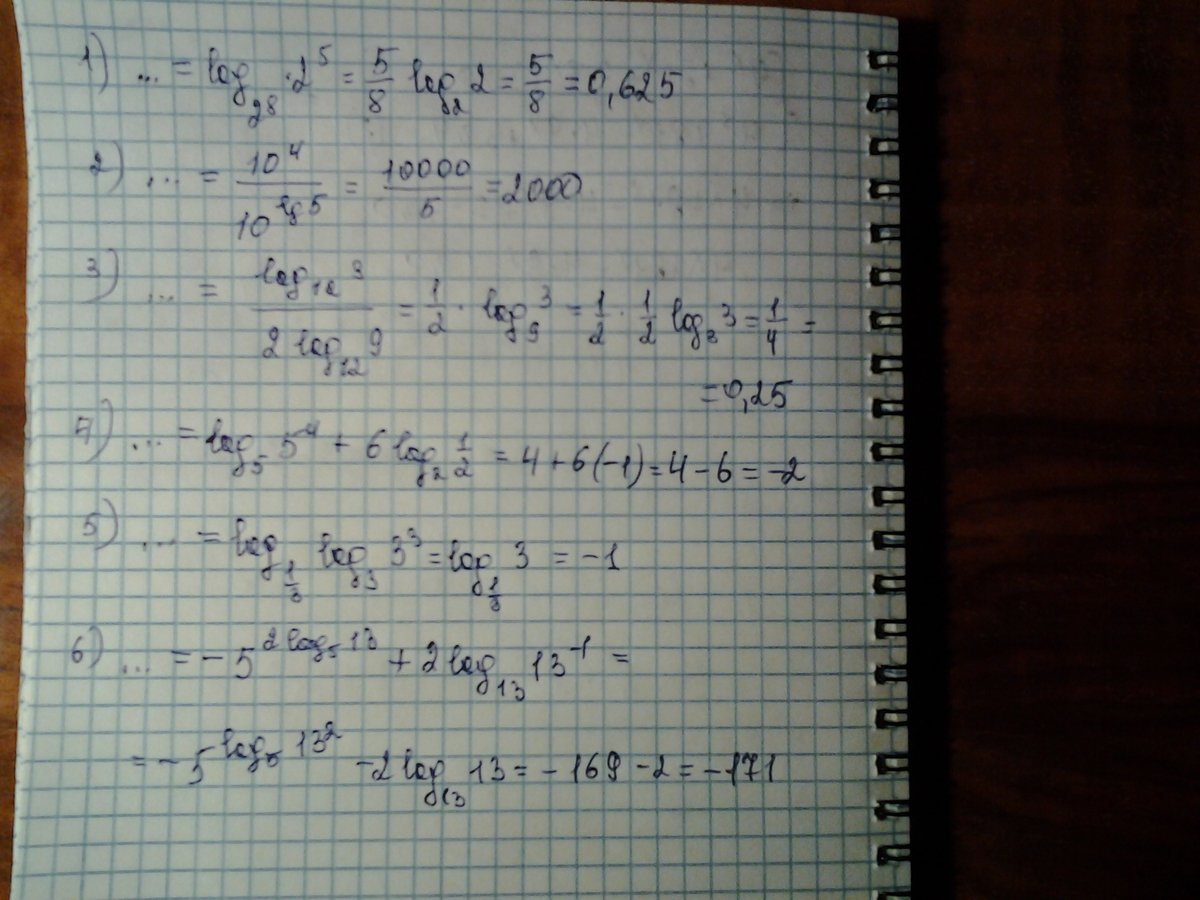 1) ... = log_{2^8} 2^5 = 5/8 log_2 2 = 5/8 = 0,625
2) ... = 10^4 / 10^{lg 5} = 10000/5 = 2000
3) ... = log_{12} 3 / 2 log_{12} 9 = 1/2 · log_9 3 = 1/2 · 1/2 log_3 3 = 1/4 =
= 0,25
4) ... = log_5 5^4 + 6 log_2 1/2 = 4 + 6(-1) = 4 - 6 = -2
5) ... = log_{1/3} log_3 3^3 = log_{1/3} 3 = -1
6) ... = -5^{2 log_5 13} + 2 log_{13} 13^{-1} =
= -5^{log_5 13^2} - 2 log_{13} 13 = -169 - 2 = -171